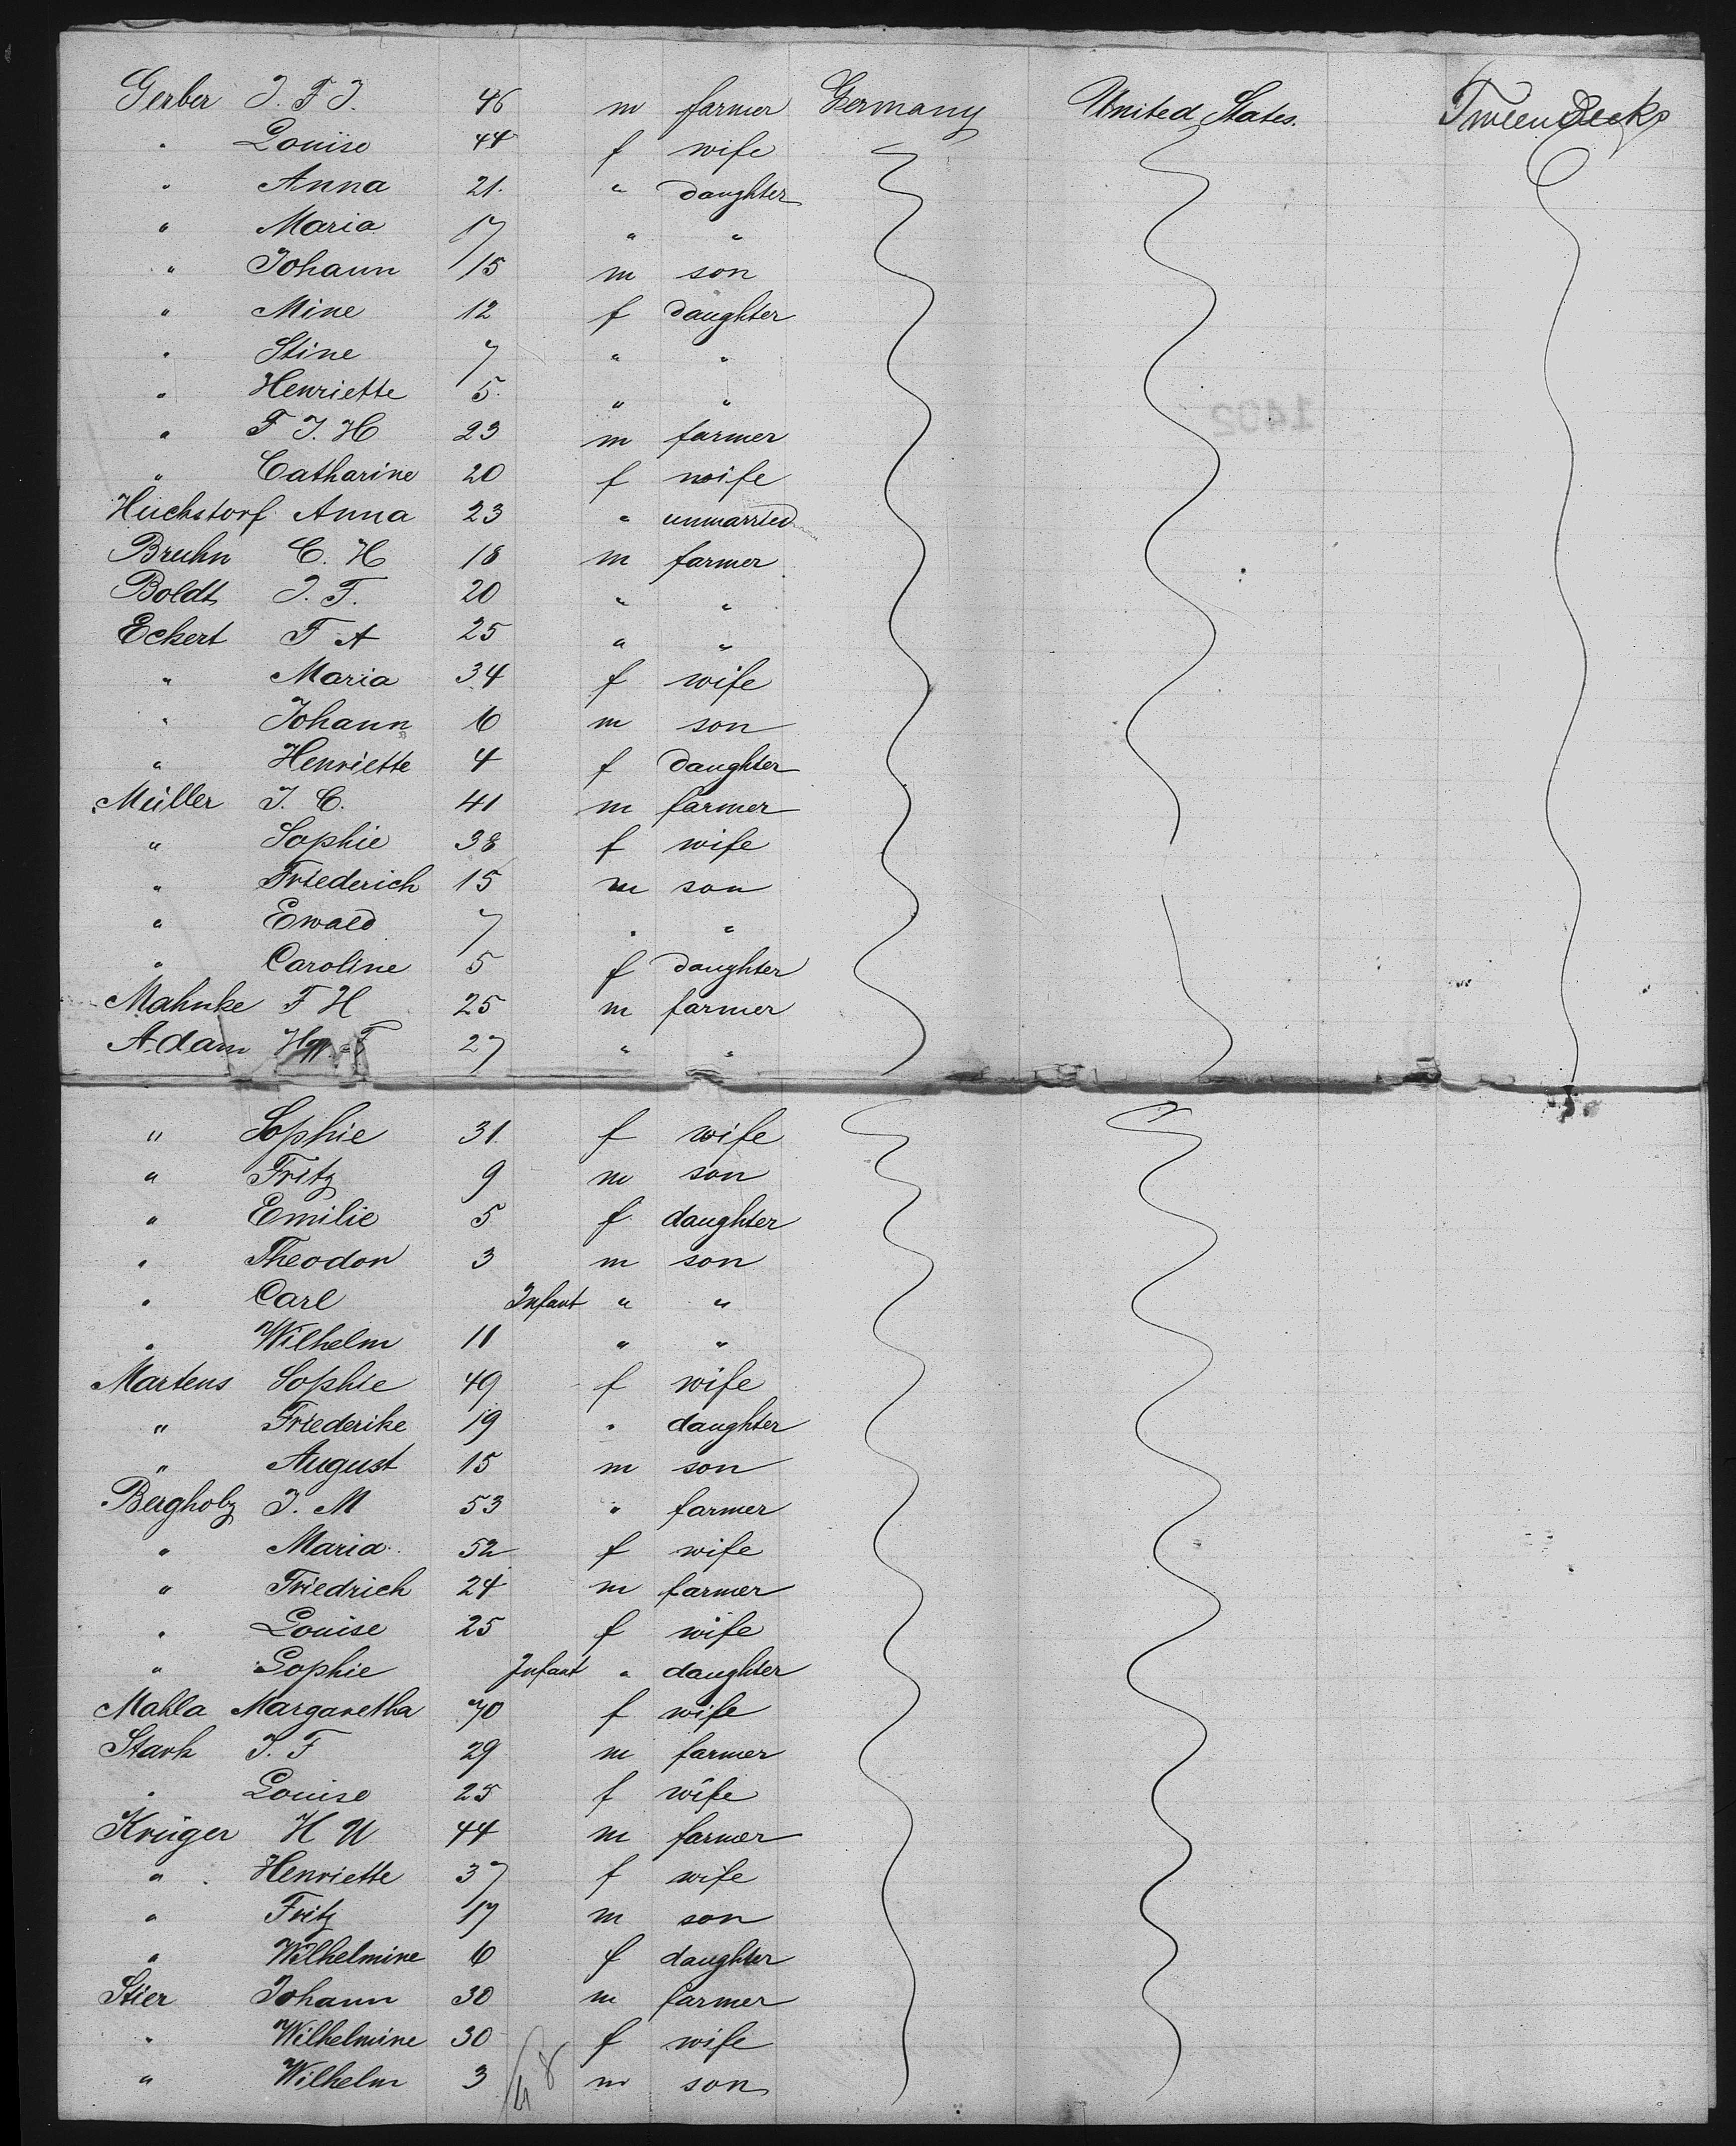 Gerber J. F J. 46 m farmer Germany United States. Tween Decks
" Louise 44 f wife
" Anna 21. " daughter
" Maria 17 " "
" Johann 15 m son
" Mine 12 f daughter
" Stine 7 " "
" Henriette 5. " "
" F J. H 23 m farmer
" Catharine 20 f wife
Huchstorf Anna 23 " unmarried
Bruhn C. H 18 m farmer
Boldt J. F. 20 " "
Eckert F A 25 " "
" Maria 34 f wife
" Johann 6 m son
" Henriette 4 f daughter
Müller J. C. 41 m farmer
" Sophie 38 f wife
" Friederich 15 m son
" Ewald 7 " "
" Caroline 5 f daughter
Mahnke F H 25 m farmer
Adam F 27 " "
" Sophie 31 f wife
" Fritz 9 m son
" Emilie 5 f daughter
" Theodor 3 m son
" Carl Infant " "
" Wilhelm 11 " "
Martens Sophie 49 f wife
" Friederike 19 " daughter
" August 15 m son
Bergholz J. M 53 " farmer
" Maria 52 f wife
" Friedrich 24 m farmer
" Louise 25 f wife
" Sophie Infant " daughter
Mahla Margaretha 70 f wife
Stark J. F 29 m farmer
" Louise 25 f wife
Krüger H W 44 m farmer
" Henriette 37 f wife
" Fritz 17 m son
" Wilhelmine 6 f daughter
Stier Johann 30 m farmer
" Wilhelmine 30 f wife
" Wilhelm 3 m son
48